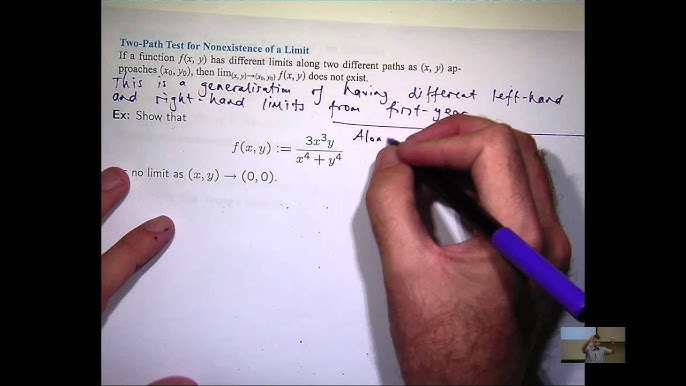 Two-Path Test for Nonexistence of a Limit
If a function f(x, y) has different limits along two different paths as (x, y) ap-
proaches (x₀, y₀), then lim₍ₓ,ᵧ₎→₍ₓ₀,ᵧ₀₎ f(x, y) does not exist.
This is a generalisation of having different left-hand
and right-hand limits from first-year
Ex: Show that
Alon
f(x, y) := 3x³y / x⁴ + y⁴
no limit as (x, y) → (0, 0).